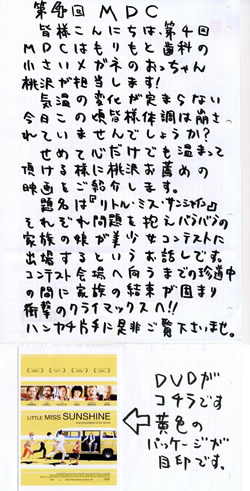 第4回 MDC
皆様こんにちは。第4回
MDCはもりもと歯科の
小さいメガネのおっちゃん
桃沢が担当します!
気温の変化が定まらない
今日この頃皆様体調は崩さ
れていませんでしょうか?
せめて心だけでも温まって
頂ける様に桃沢お薦めの
映画をご紹介します。
題名は『リトル・ミス・サンシャイン』
それぞれ問題を抱えバラバラの
家族の娘が美少女コンテストに
出場するというお話しです。
コンテスト会場へ向うまでの珍道中
の間に家族の結束が固まり
衝撃のクライマックスへ!!
ハンカチ片手に是非ご覧下さいませ。
LITTLE MISS SUNSHINE
DVDが
コチラです
黄色の
パッケージが
目印です。